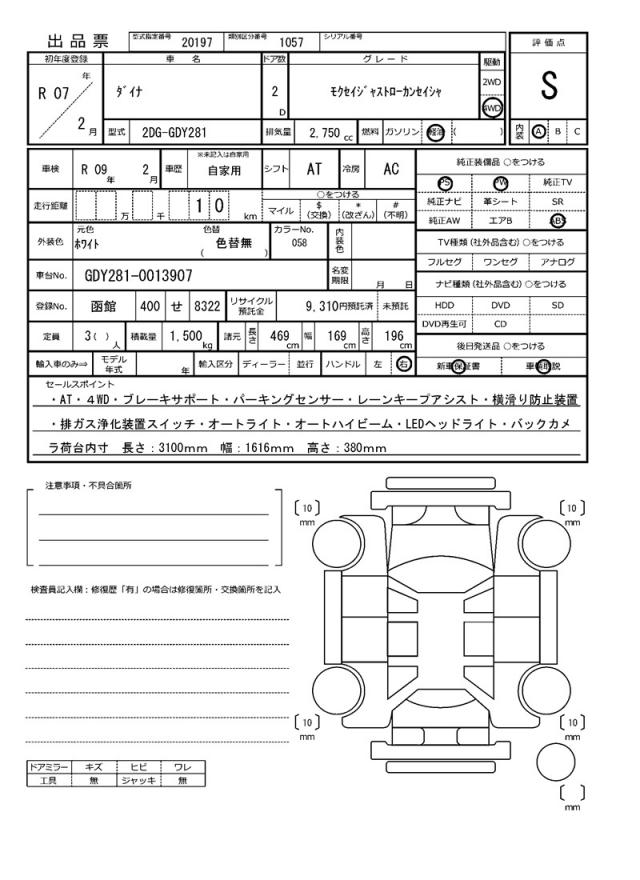 出品票 型式指定番号 20197 類別区分番号 1057 シリアル番号
初年度登録 車名 ドア数 グレード 駆動 評価点
R 07 年 2 月 ﾀﾞｲﾅ 2 D ﾓｸｾｲｼﾞｬｽﾄﾛｰｶﾝｾｲｼｬ 2WD 4WD S
型式 2DG-GDY281 排気量 2,750 cc 燃料 ガソリン 軽油 ( ) 内装 A B C
車検 R 09 年 2 月 車歴 ※未記入は自家用 自家用 シフト AT 冷房 AC 純正装備品 ○をつける
PS PW 純正TV
走行距離 万 千 1 0 km ○をつける
マイル $ (交換) * (改ざん) # (不明)
純正ナビ 革シート SR
純正AW エアB ABS
外装色 元色 ﾎﾜｲﾄ 色替 色替無 ( ) カラーNo. 058 内装色
TV種類 (社外品含む) ○をつける
フルセグ ワンセグ アナログ
車台No. GDY281-0013907 名変期限 月 日
ナビ種類 (社外品含む) ○をつける
登録No. 函館 400 せ 8322 リサイクル預託金 9,310円預託済 未預託
HDD DVD SD
DVD再生可 CD
定員 3( ) 人 積載量 1,500 kg 諸元 長さ 469 cm 幅 169 cm 高さ 196 cm
後日発送品 ○をつける
輸入車のみ⇒ モデル年式 年 輸入区分 ディーラー 並行 ハンドル 左 右
新車保証書 車輌取説
セールスポイント
・AT・４WD・ブレーキサポート・パーキングセンサー・レーンキープアシスト・横滑り防止装置
・排ガス浄化装置スイッチ・オートライト・オートハイビーム・LEDヘッドライト・バックカメ
ラ荷台内寸 長さ：3100mm 幅：1616mm 高さ：380mm
注意事項・不具合箇所
検査員記入欄：修復歴「有」の場合は修復箇所・交換箇所を記入
〔10〕mm 〔10〕mm
〔10〕mm 〔10〕mm
〔 〕mm
ドアミラー キズ ヒビ ワレ
工具 無 ジャッキ 無